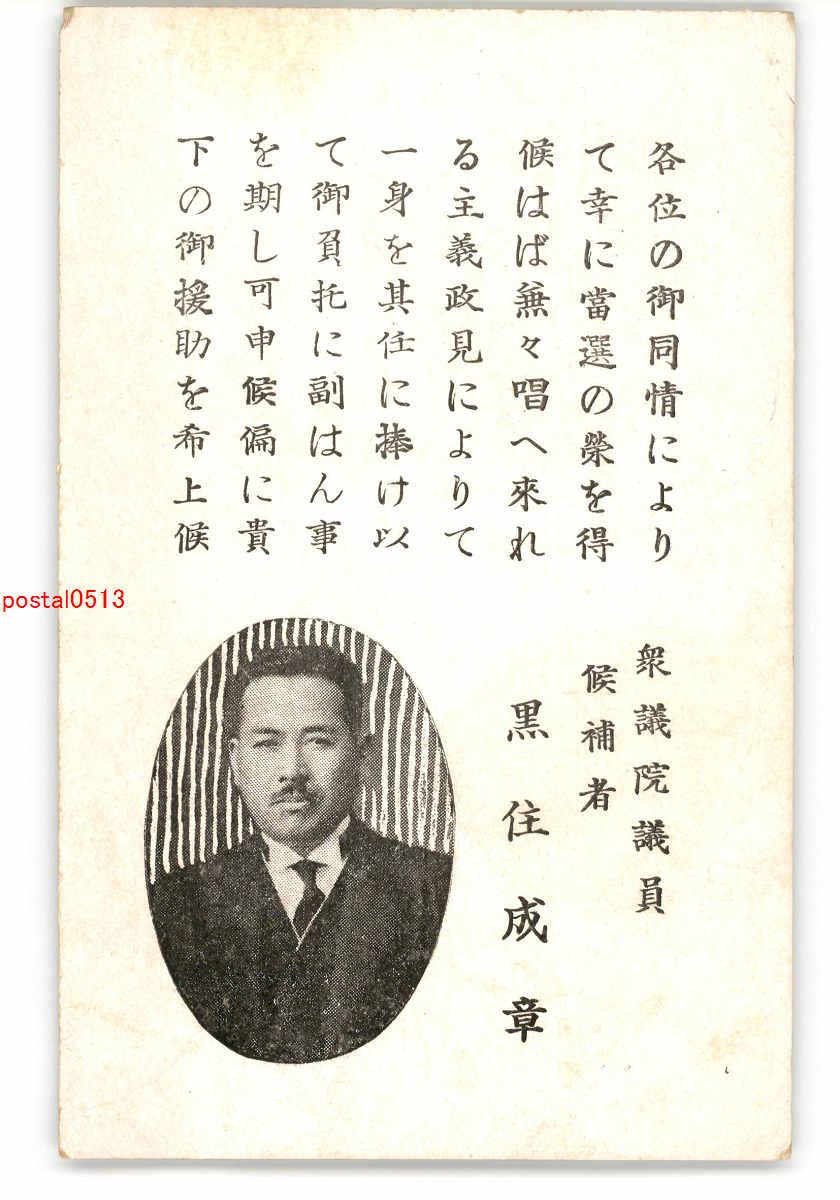 各位の御同情により
て幸に當選の榮を得
候はば兼々唱へ來れ
る主義政見によりて
一身を其任に捧け以
て御負托に副はん事
を期し可申候偏に貴
下の御援助を希上候
衆議院議員
候補者
黒住成章
postal0513